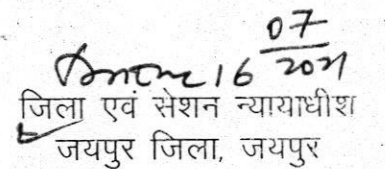 16 07
2021
जिला एवं सेशन न्यायाधीश
जयपुर जिला, जयपुर